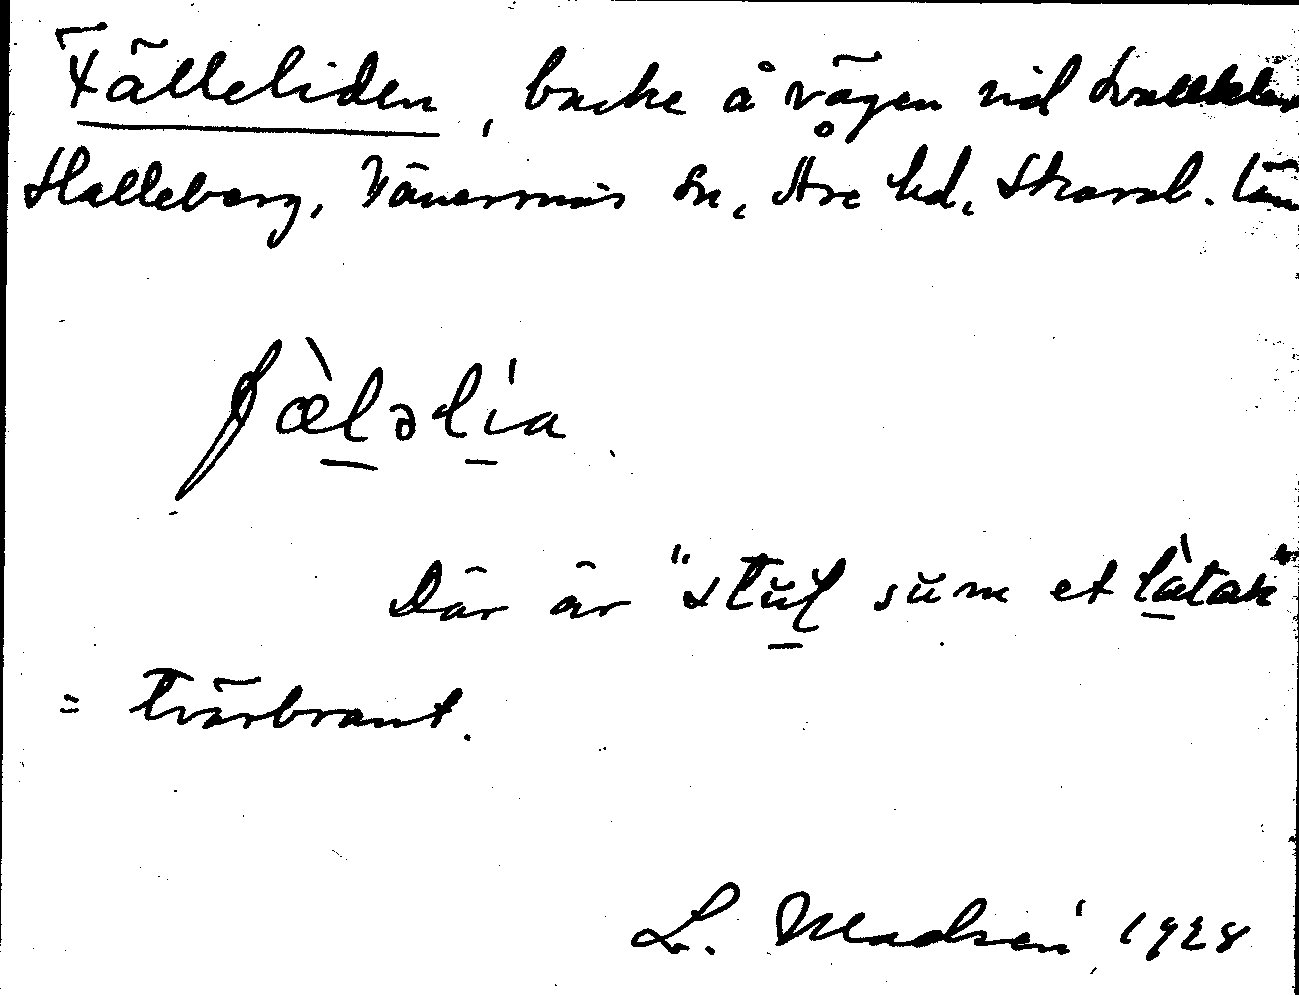 Fälleliden, backe å vägen vid
Halleberg, Vänersnäs sn, Åse hd, Skarab. län
fæ̀lədía
Där är "stuɭ sum et låtak"
= tvärbrant.
L. Madsén 1928